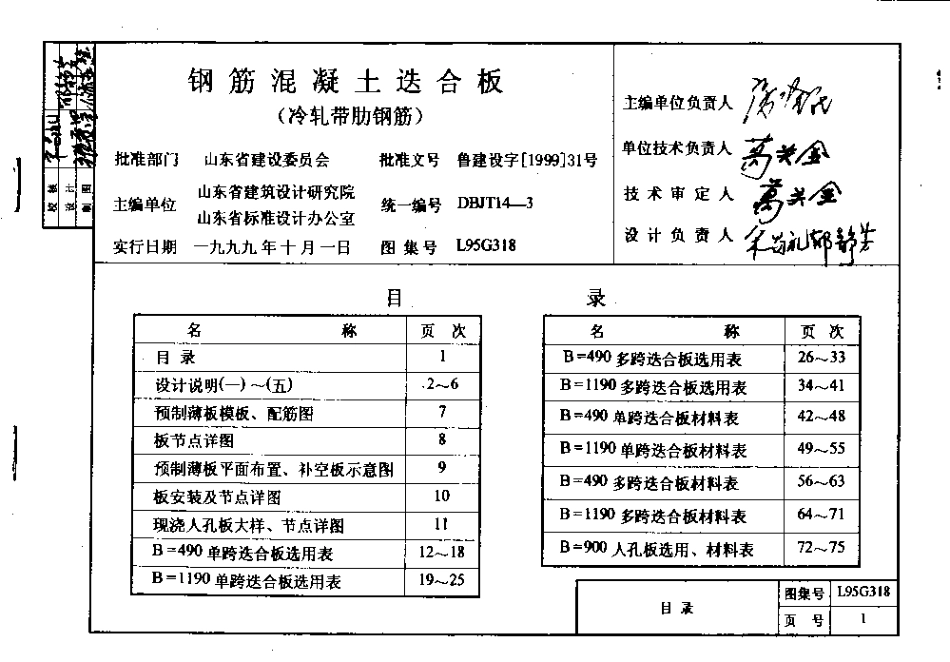 钢筋混凝土迭合板
(冷轧带肋钢筋)
批准部门 山东省建设委员会 批准文号 鲁建设字[1999]31号
主编单位 山东省建筑设计研究院 统一编号 DBJT14—3
山东省标准设计办公室
实行日期 一九九九年十月一日 图集号 L95G318
主编单位负责人
单位技术负责人
技术审定人
设计负责人
校核
设计
制图
目录
名称 页次
目录 1
设计说明(一)～(五) 2～6
预制薄板模板、配筋图 7
板节点详图 8
预制薄板平面布置、补空板示意图 9
板安装及节点详图 10
现浇人孔板大样、节点详图 11
B=490单跨迭合板选用表 12～18
B=1190单跨迭合板选用表 19～25
名称 页次
B=490多跨迭合板选用表 26～33
B=1190多跨迭合板选用表 34～41
B=490单跨迭合板材料表 42～48
B=1190单跨迭合板材料表 49～55
B=490多跨迭合板材料表 56～63
B=1190多跨迭合板材料表 64～71
B=900人孔板选用、材料表 72～75
目录 图集号 L95G318
页号 1